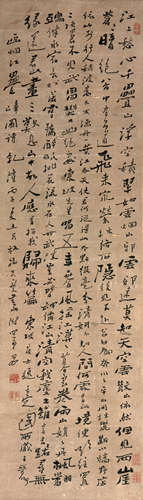 江上愁心千疊山浮空積翠如雲煙山耶雲耶遠莫知煙空雲散山依然但見兩崖
蒼蒼暗絕谷中有百道飛來泉縈林絡石隱復見下赴谷口為奔川川平山開林麓斷小橋野店
依山前行人稍度喬木外漁舟一葉江吞天使君何從得此本點綴毫末分清妍不知人間何處有此境徑欲往買二頃
田君不見武昌樊口幽絕處東坡先生留五年春風搖江天漠漠暮雲卷雨山娟娟丹楓翻
鴉伴水宿長松落雪驚醉眠桃花流水在人世武陵豈必皆神仙江山清空我塵土雖有去路尋無
緣還君此畫三歎息山中故人應有招我歸來篇 東坡 王定國所藏王晉卿
煙江疊嶂圖詩 乾隆